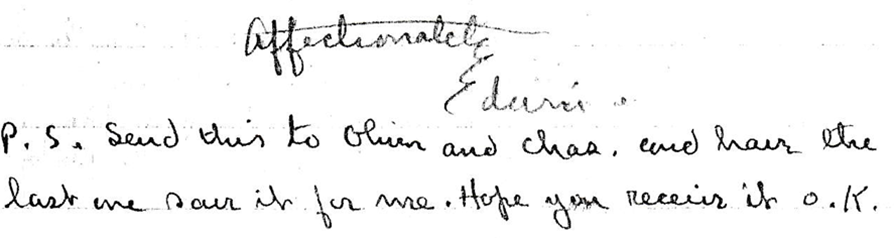 Affectionately
Edwin.
P. S. Send this to Oliver and Chas. and have the
last one save it for me. Hope you receive it O.K.